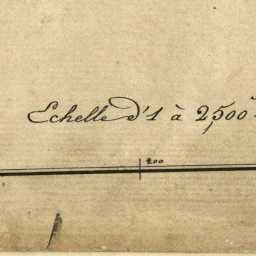 Echelle d'1 à 2,500
200